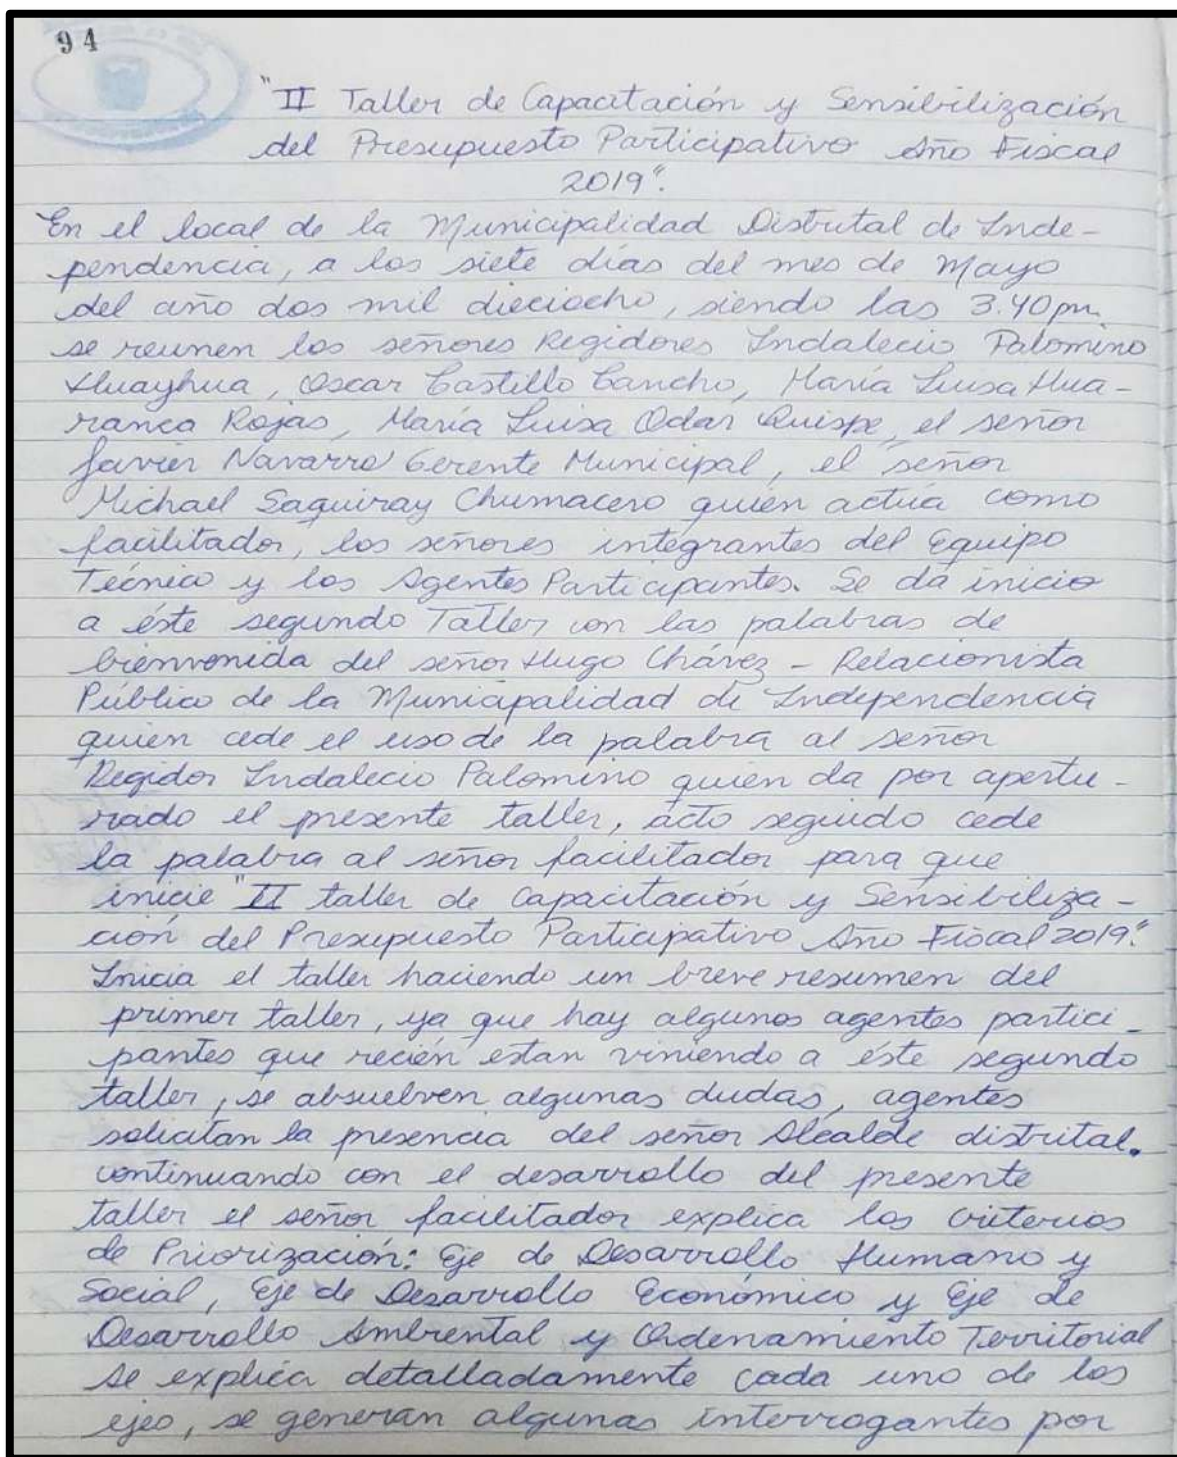 94
"II Taller de Capacitación y Sensibilización
del Presupuesto Participativo Año Fiscal
2019".
En el local de la Municipalidad Distrital de Inde-
pendencia, a los siete días del mes de Mayo
del año dos mil dieciocho, siendo las 3.40 pm.
se reunen los señores Regidores Indalecio Palomino
Huayhua, Oscar Castillo Cancho, María Luisa Hua-
ranca Rojas, María Luisa Odar Quispe, el señor
Javier Navarro Gerente Municipal, el señor
Michael Saquiray Chumacero quién actúa como
facilitador, los señores integrantes del Equipo
Técnico y los Agentes Participantes. Se dá inicio
a éste segundo Taller con las palabras de
bienvenida del señor Hugo Chávez - Relacionista
Público de la Municipalidad de Independencia
quien cede el uso de la palabra al señor
Regidor Indalecio Palomino quién da por apertu-
rado el presente taller, acto seguido cede
la palabra al señor facilitador para que
inicie "II taller de Capacitación y Sensibiliza-
ción del Presupuesto Participativo Año Fiscal 2019".
Inicia el taller haciendo un breve resumen del
primer taller, ya que hay algunos agentes partici-
pantes que recién estan viniendo a éste segundo
taller, se absuelven algunas dudas, agentes
solicitan la presencia del señor Alcalde distrital.
continuando con el desarrollo del presente
taller el señor facilitador explica los criterios
de Priorización: Eje de Desarrollo Humano y
Social, Eje de Desarrollo Económico y Eje de
Desarrollo Ambiental y Ordenamiento Territorial
se explica detalladamente cada uno de los
ejes, se generan algunas interrogantes por